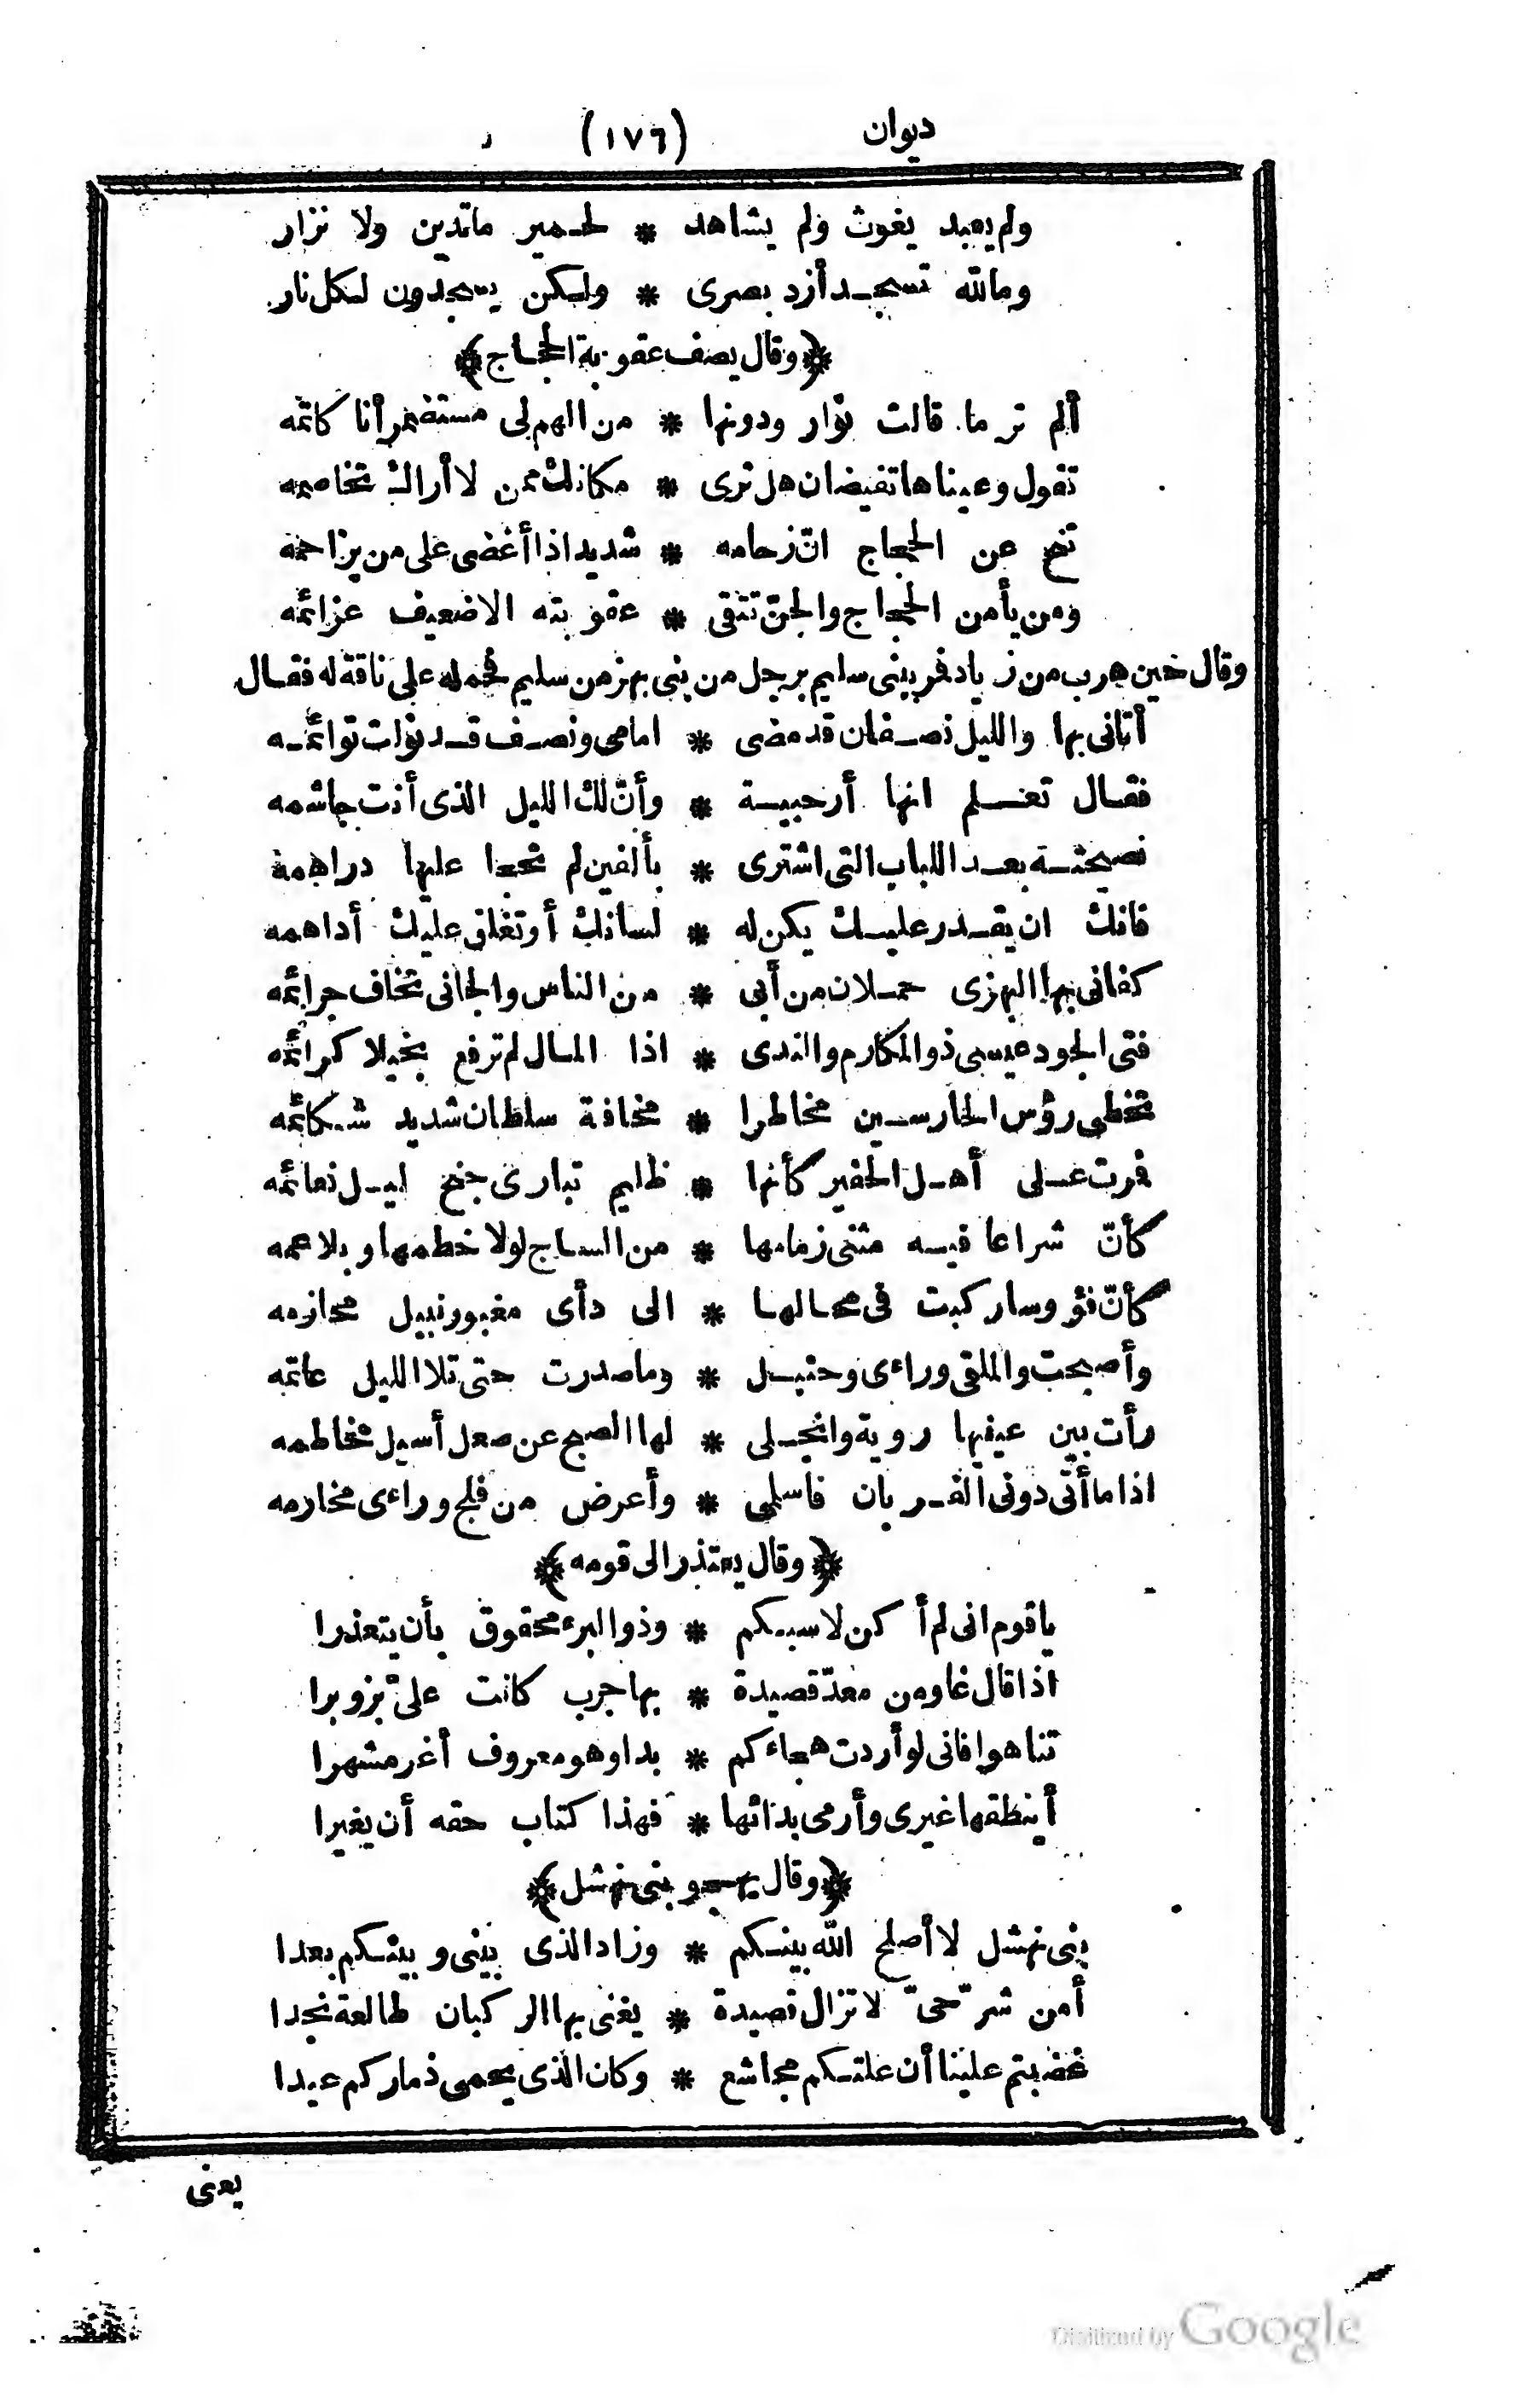 ديوان (١٧٦)
ولم يعبد يغوث ولم يشاهد * لحمير ماتدين ولا نزار
ومالله تسجد أزد بصرى * ولكن يسجدون لكل نار
﴿وقال يصف عقوبة الحجاج﴾
ألم تر ما قالت نوار ودونها * من الهم لى مستضمر أنا كاتمه
تقول وعيناها تفيضان هل ترى * مكانك ممن لا أراك تخاصمه
تنح عن الحجاج ان زحامه * شديد اذا أغضى على من يزاحمه
ومن يأمن الحجاج والجن تتقى * عقوبته الا ضعيف عزائمه
وقال حين هرب من زياد فمر ببنى سليم برجل من بنى بهز من سليم فحمله على ناقة له فقال
أتانى بها والليل نصفان قد مضى * امامى ونصف قد تولت توائمه
فقال تعلم انها أرحبية * وأن لك الليل الذى أنت جاشمه
نصيحته بعد اللباب التى اشترى * بألفين لم تحجا عليها دراهمه
فانك ان يقدر عليك يكن له * لسانك أو تغلق عليك أداهمه
كفانى بها البهزى حملان من أبى * من الناس والجانى تخاف جرائمه
فتى الجود عيسى ذو المكارم والندى * اذا المال لم ترفع بخيلا كرائمه
تخطى رؤس الحارسين مخاطرا * مخافة سلطان شديد شكائمه
فمرت على أهل الحفير كأنها * ظليم تبارى جنح ليل نعائمه
كأن شراعا فيه مثنى زمامها * من الساج لولا خطمها وبلاعمه
كأن فؤوسا ركبت فى محالها * الى دأى مغبور نبيل محازمه
وأصبحت والملقى وراءى وحنبل * وما صدرت حتى تلا الليل عاتمه
رأت بين عينيها روية وانجلى * لها الصبح عن صعل أسيل مخاطمه
اذا ما أتى دونى الفريان فاسلمى * وأعرض من فلج وراءى مخارمه
﴿وقال يعتذر الى قومه﴾
يا قوم انى لم أكن لاسبكم * وذو البرء محقوق بأن يتعذرا
اذا قال غاو من معد قصيدة * بها جرب كانت علىّ بزوبرا
تناهوا فانى لو أردت هجاءكم * بدا وهو معروف أغر مشهرا
أينطقها غيرى وأرمى بدائها * فهذا كتاب حقه أن يغيرا
﴿وقال يهجو بنى نهشل﴾
بنى نهشل لا أصلح الله بينكم * وزاد الذى بينى وبينكم بعدا
أمن شرّ حىّ لا تزال قصيدة * يغنى بها الركبان طالعة نجدا
غضبتم علينا أن علتكم مجاشع * وكان الذى يحمى ذماركم عبدا
يعنى
Digitized by Google